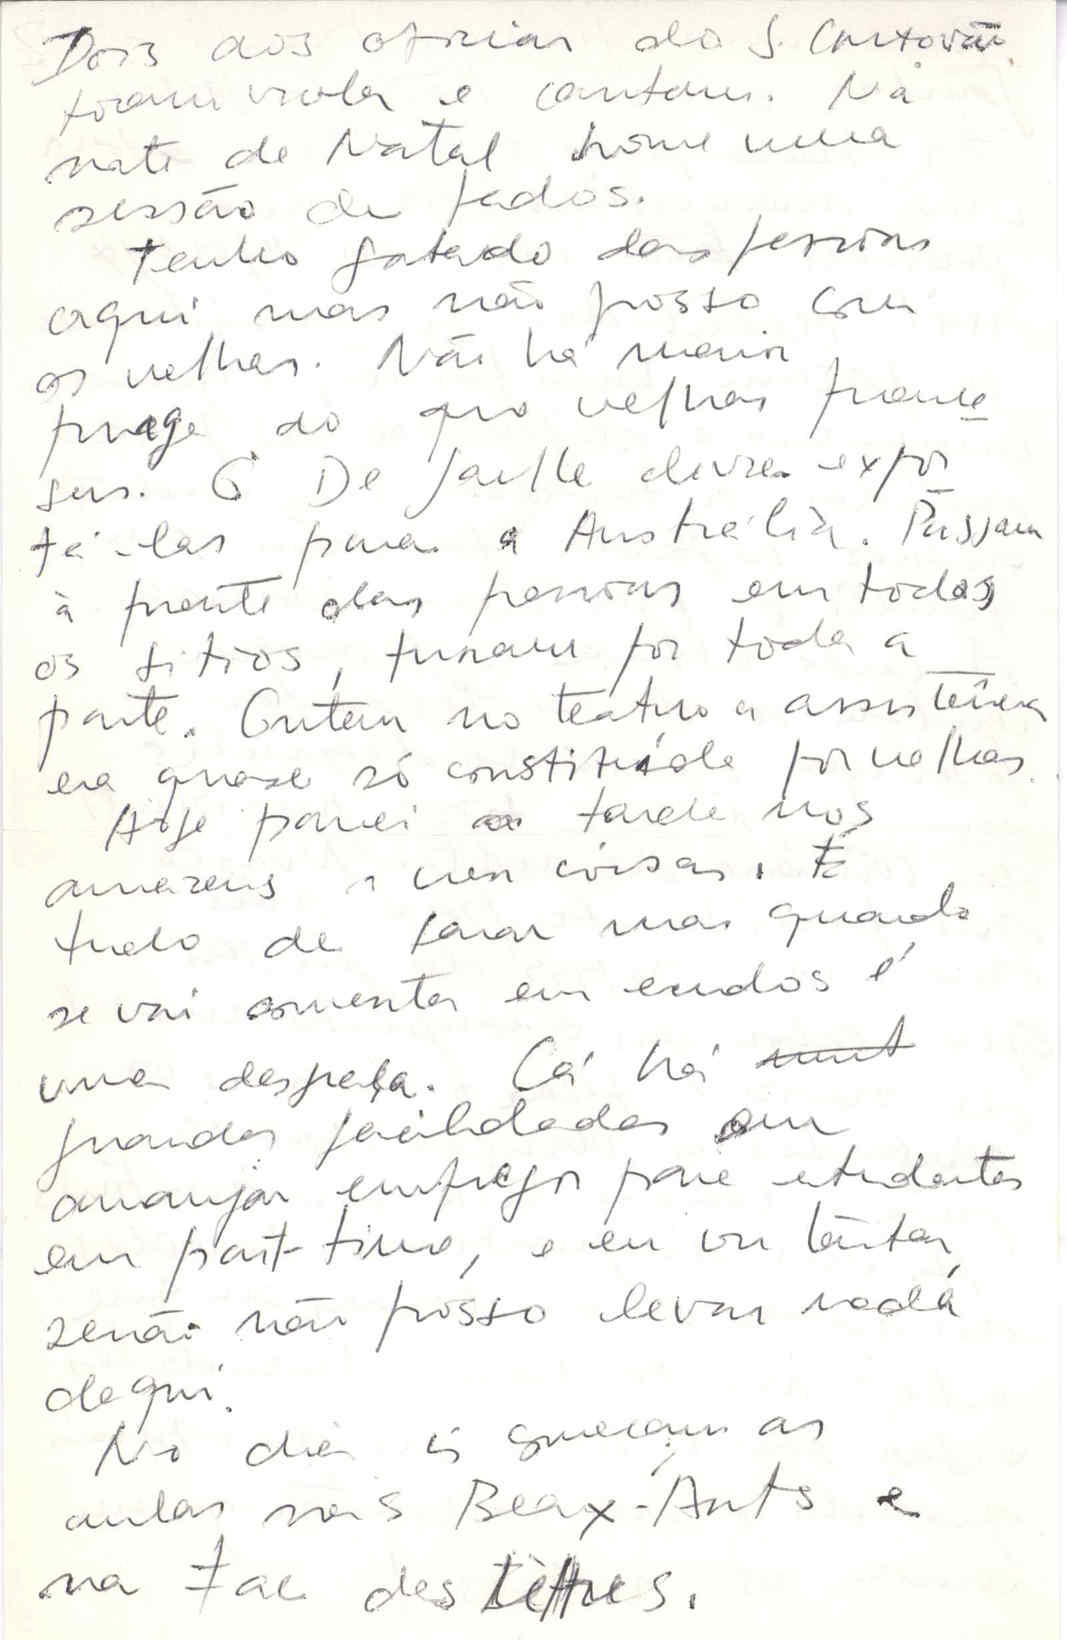 Dois dos oficiais do S. Cristóvão
tocam viola e cantam. Na
noite de Natal houve uma
sessão de fados.
Tenho gostado das pessoas
aqui mas não posso com
as velhas. Não há maior
praga do que velhas france
sas. O De Gaulle devia expor
tá-las para a Austrália. Passam
à frente das pessoas em todos
os sitios, furam por toda a
parte. Ontem no teatro a assistência
era quase só constituída por velhas.
Hoje passei a tarde nos
armazens a ver coisas. É
tudo de tarar mas quando
se vai aumentar em escudos é
uma desgraça. Cá há muit
grandes facilidades em
arranjar empregos para estudantes
em part-time, e eu vou tentar,
senão não posso levar nada
daqui.
No dia começam as
aulas nas Beaux-Arts e
na Fac des Lettres.